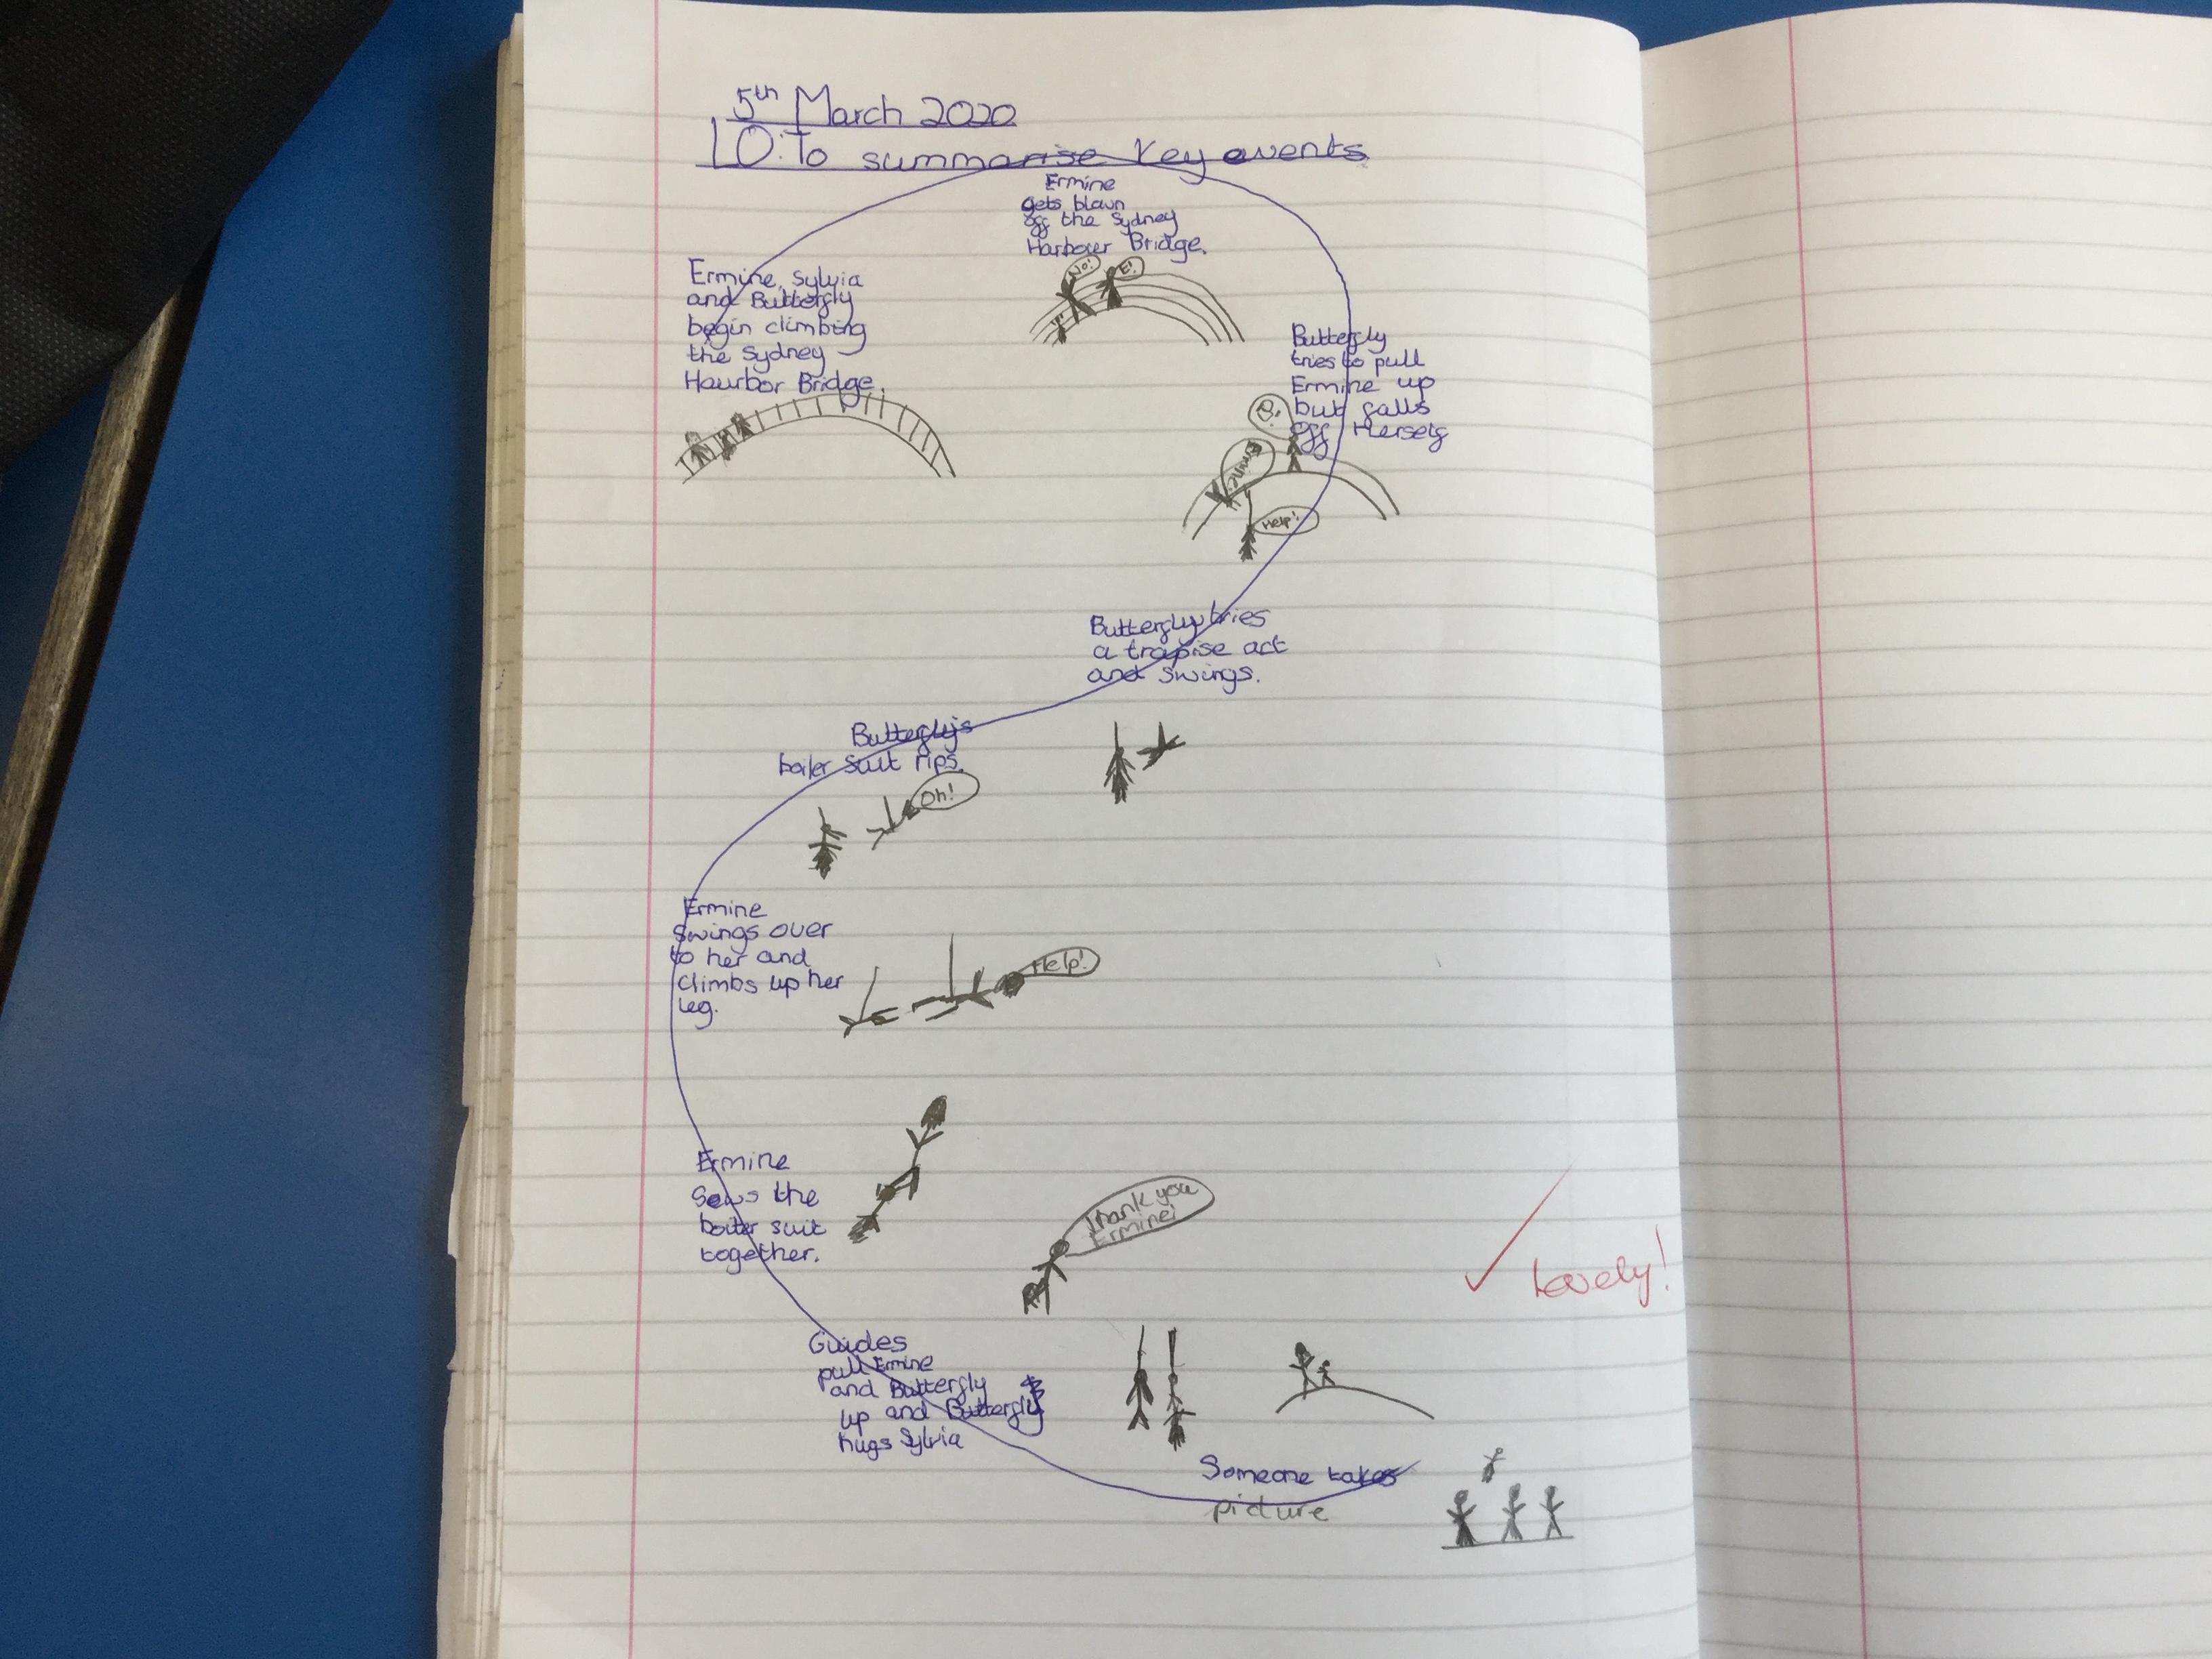 5th March 2020
LO: To summarise key events
Ermine, Sylvia
and Butterfly
begin climbing
the Sydney
Haurbor Bridge.
Ermine
gets blown
off the Sydney
Harbour Bridge.
No!
E!
Butterfly
tries to pull
Ermine up
but falls
off Herself
B!
Ermine
Help!
Butterfly tries
a trapise act
and swings.
Butterfly's
boiler suit rips.
Oh!
Ermine
Swings over
to her and
climbs up her
leg.
Help!
Ermine
Sews the
boiler suit
together.
Thank you
Ermine!
Lovely!
Guides
pull Ermine
and Butterfly
up and Butterfly
hugs Sylvia
Someone takes
picture